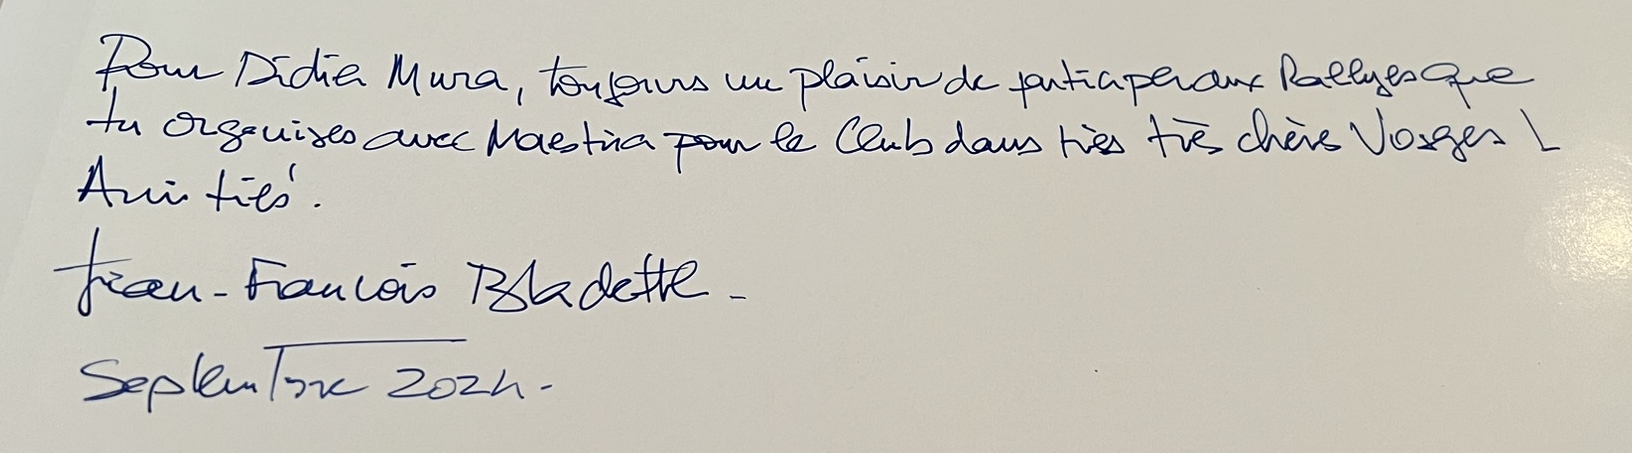 Pour Didier Mura, toujours un plaisir de participer aux Rallyes que
tu organises avec Maestria pour le Club dans très très chère Vosges !
Amitiés.
Jean-François Bladette.
Septembre 2024.